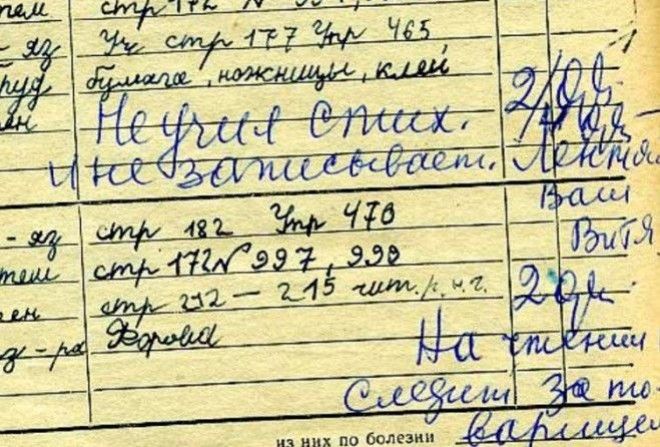 тем стр 172 №
- яз Уч стр 177 Упр 465
руд бумага, ножницы, клей
ен Не учил стих. 2/ два
и не записывает. Лентя
Ваш
- яз стр 182 Упр 470 Витя
тем стр 172 № 997, 999
ен стр 212 – 215 чит. 2 два
з-ра Форма
На чтении
Следит за то-
из них по болезни варищем